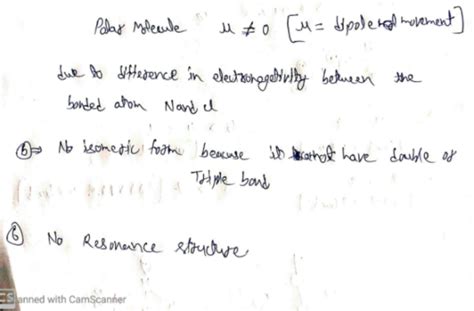 Polar Molecule μ ≠ 0 [μ = dipole movement]
due to difference in electronegativity between the
bonded atom N and cl
⑤⇒ No isomeric form because it cannot have double or
Triple bond
⑥ No Resonance structure
CS anned with CamScanner